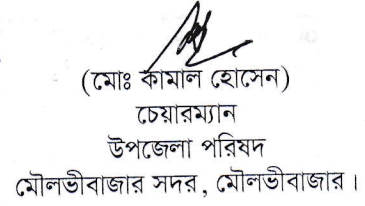 (মোঃ কামাল হোসেন)
চেয়ারম্যান
উপজেলা পরিষদ
মৌলভীবাজার সদর, মৌলভীবাজার।